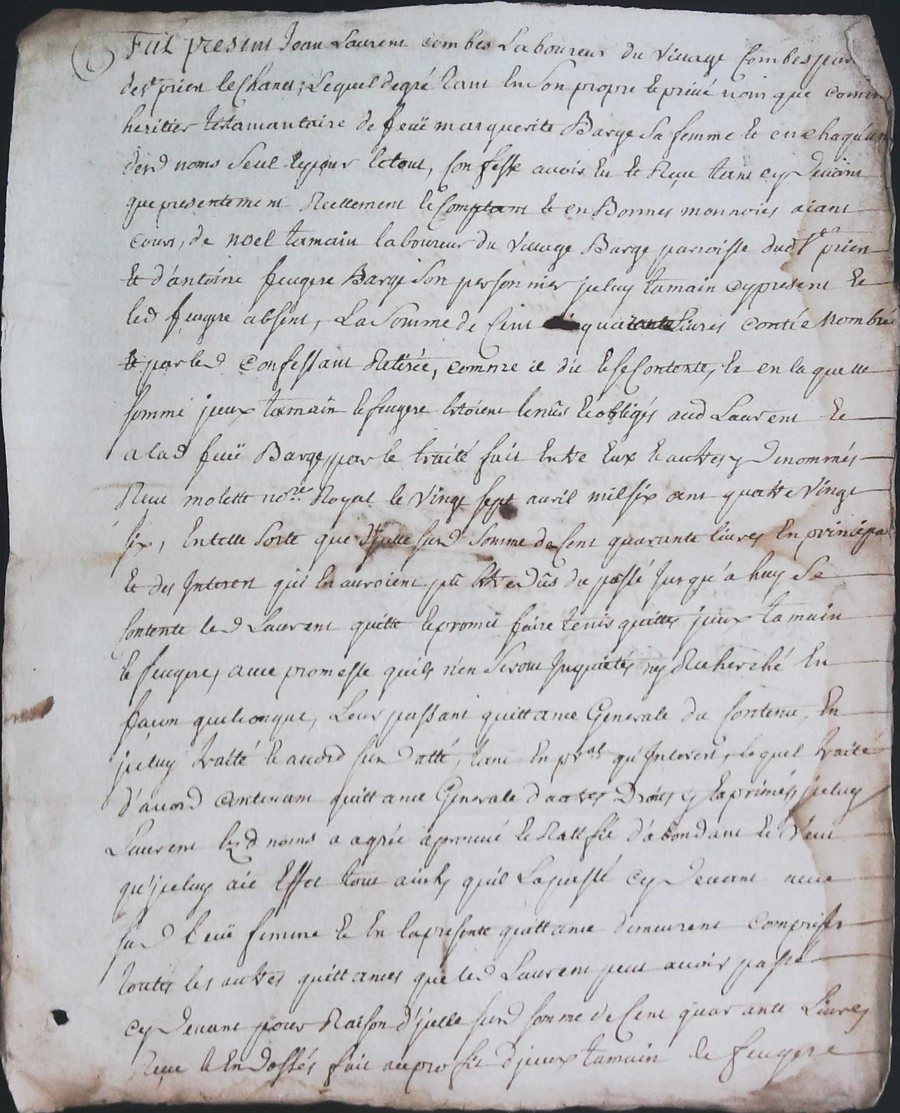 Fut present Jean Laurent combes Laboureur du village Combes par
de st prien le Chanet; Lequel degré tant en Son propre et privé nom que comm
heritier testamantaire de feüe marguerite Barge Sa femme et en chaqu'un
desd noms Seul et pour letout, Confesse avoir Eu et Reçu tant cy Devant
que presentement Reellement et Comptant et en Bonnes monnoies aiant
cours, de noel tamain laboureur du village Barge parroisse dud st prien
et d'antoine feugere Barge Son personnier jceluy tamain cy present et
led feugere absent, La Somme de Cent quarante livres contée Nombré
et par led Confessant Retirée, comme il dit et se Contente, et en laquelle
somme jceux tamain et feugere Estoient tenûs et obligés aud Laurent et
a lad feüe Barge, par le traité fait Entre Eux et autres y Denommés
Reçu molette nore Royal le Vingt sept avril mil six cent quatre Vingt
six, En telle Sorte que d'jcelle susd Somme de Cent quarante livres En principal
et des Interest qui En auroient pû Estre dûs du passé Jusqu'a huy Se
Contente led Laurent quitte et promis faire tenir quittes jceux tamain
et feugere, avec promesse quils n'en Seront Inquietés ny Recherché En
facon quelconque, Leur passant quittance Generale du Contenu, En
jceluy traité et acord susd datté, tant En pral qu'Interest, lequel traité
d'acord Contenant quittance Generale d'autres Droits y Exprimés jceluy
Laurent esd noms a agréé aprouvé et Rattifié d'abondant et Veut
qu'jceluy aie Effet tout ainsy quil La passé cy Devant avec
sad feüe femme et En la presente quittance demeurent comprises
toutes les autres quittances que led Laurent peut avoir passé
cy Devant pour Raison d'jcelle susd somme de Cent quarante Livres
Reçu et Endossés fait au profit d'jceux tamain et feugere